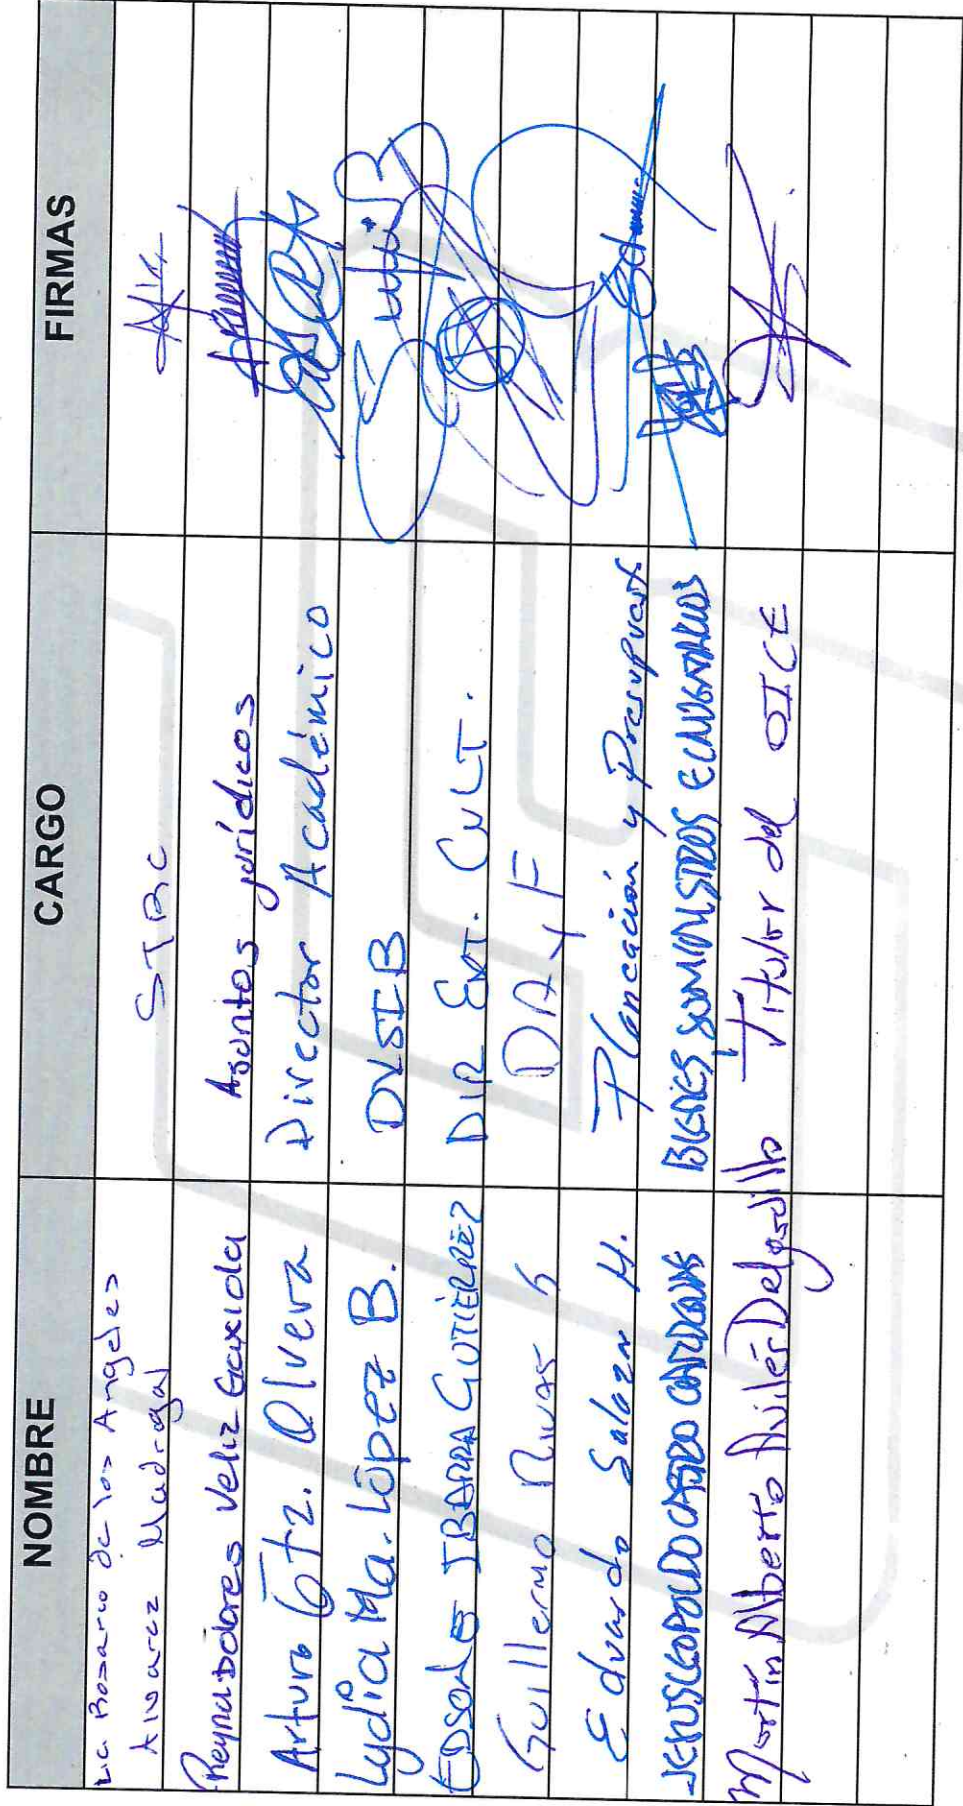 NOMBRE CARGO FIRMAS
Lic. Rosario de los Angeles
Alvarez Madrigal STRC
Reyna Dolores Veliz Gaxiola Asuntos jurídicos
Arturo Gtz. Olvera Director Académico
Lydia Ma. López B. DVSIB
EDSON IBARRA GUTIÉRREZ DIR EXT. CULT.
Guillermo Rivas S DAyF
Eduardo Salazar H. Planeación y Presupuesto
JESUS LEOPOLDO CASTRO CARDENAS BIENES, SUMINISTROS E INVENTARIOS
Martín Alberto Avilés Delgadillo Titular del OICE